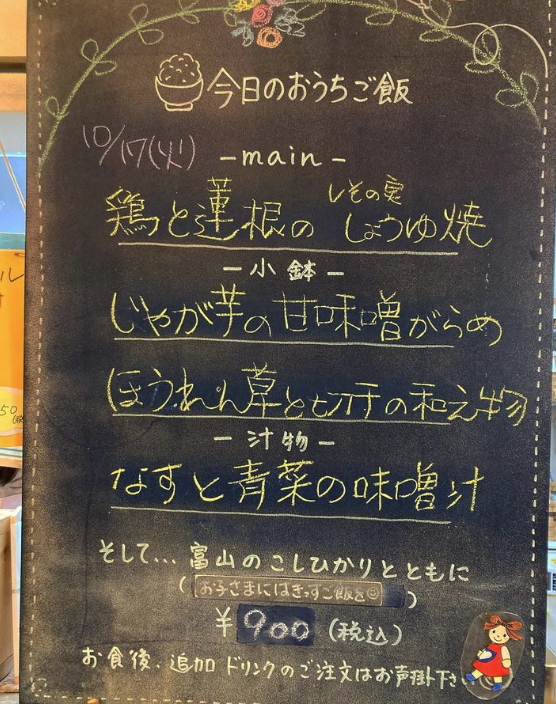 今日のおうちご飯
10/17(火)
-main-
鶏と蓮根の しその実 しょうゆ焼
-小鉢-
じゃが芋の甘味噌がらめ
ほうれん草と切干の和え物
-汁物-
なすと青菜の味噌汁
そして... 富山のこしひかりとともに
(お子さまにはきっずご飯を☺)
¥900 (税込)
お食後、追加ドリンクのご注文はお声掛下さい